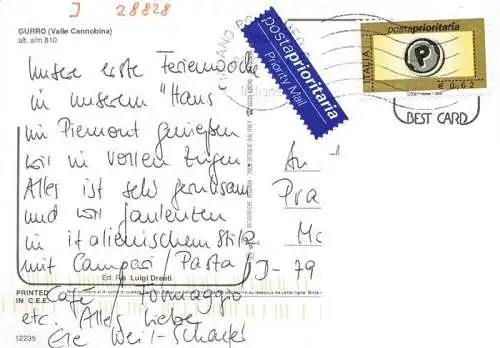 J 28828
GURRO (Valle Cannobina)
alt. s/m 810
Unsere erste Ferienwoche
in unserem "Haus"
im Piemont genießen
wir in vollen Zügen
Alles ist sehr geruhsam
und wir faulenzen
in italienischem Stil
mit Campari / Pasta /
Café / Formaggio
etc. Alles Liebe
Ed. Rist. Luigi Dresti
PRINTED
IN C.E.E.
12235
postaprioritaria
Priority Mail
postaprioritaria
ITALIA
P
€ 0,62
BEST CARD
An
Pra
D-79